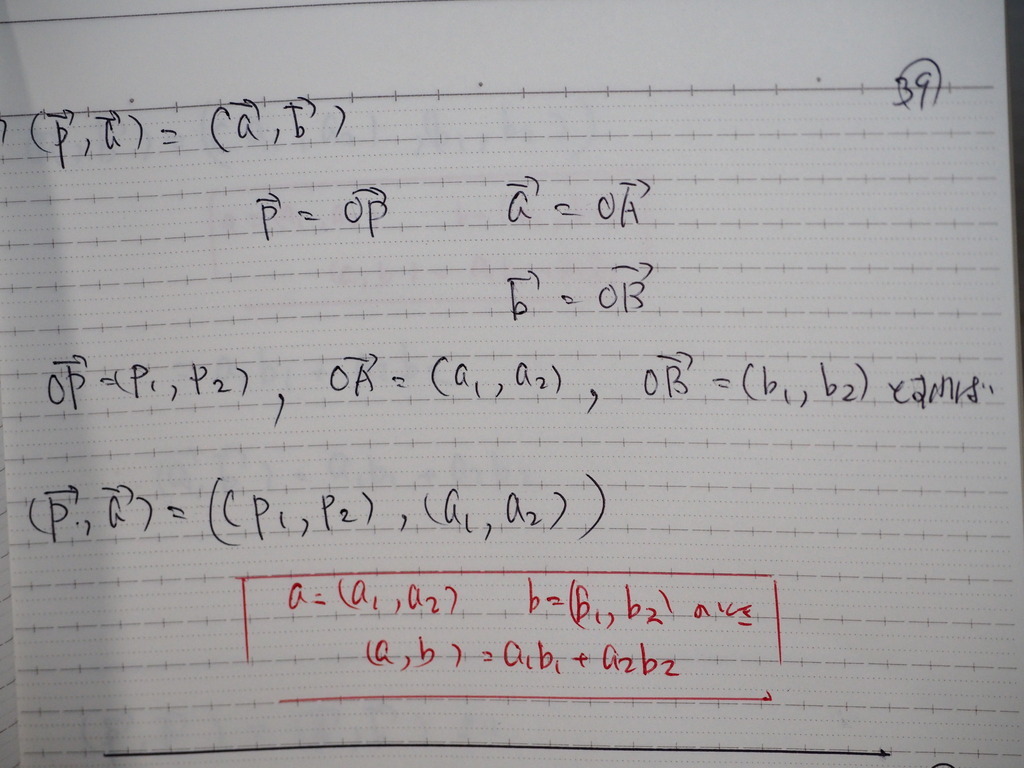 39
(p⃗, a⃗) = (a⃗, b⃗)
p⃗ = OP⃗ a⃗ = OA⃗
b⃗ = OB⃗
OP⃗ = (p₁, p₂), OA⃗ = (a₁, a₂), OB⃗ = (b₁, b₂) とおけば..
(p⃗, a⃗) = ((p₁, p₂), (a₁, a₂))
a = (a₁, a₂) b = (b₁, b₂) のとき
(a, b) = a₁b₁ + a₂b₂